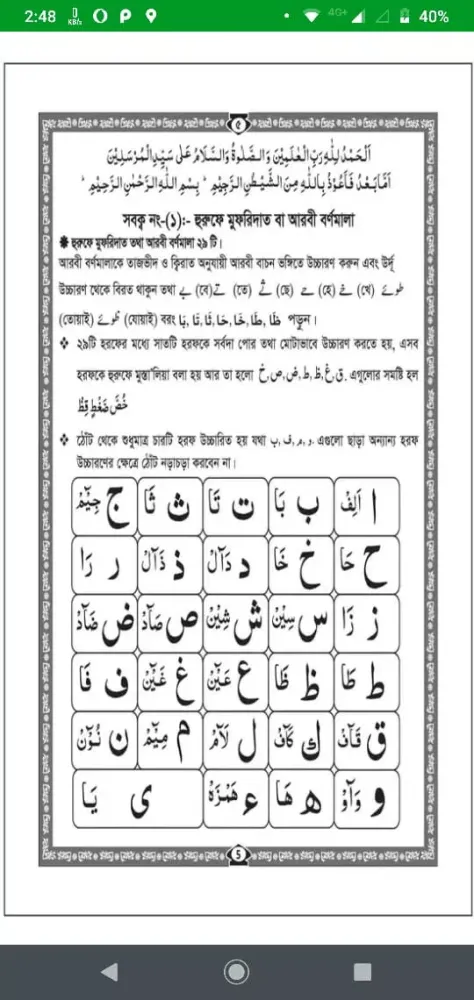 2:48
KB/s
4G+
40%
৫
اَلْحَمْدُ لِلّٰهِ رَبِّ الْعٰلَمِيْنَ وَالصَّلٰوةُ وَالسَّلَامُ عَلٰى سَيِّدِ الْمُرْسَلِيْنَ
اَمَّابَعْدُ فَاَعُوْذُ بِاللّٰهِ مِنَ الشَّيْطٰنِ الرَّجِيْمِ ؕ بِسْمِ اللّٰهِ الرَّحْمٰنِ الرَّحِيْمِ ؕ
সবক্ব নং-(১):- হুরুফে মুফরিদাত বা আরবী বর্ণমালা
✸ হুরুফে মুফরিদাত তথা আরবী বর্ণমালা ২৯ টি।
আরবী বর্ণমালাকে তাজভীদ ও ক্বিরাত অনুযায়ী আরবী বাচন ভঙ্গিতে উচ্চারণ করুন এবং উর্দূ
উচ্চারণ থেকে বিরত থাকুন তথা بے (বে) تے (তে) ثے (ছে) حے (হে) خے (খে) طوئے
(তোয়াই) ظوئے (যোয়াই) বরং بَا, تَا, ثَا, حَا, خَا, طَا, ظَا পড়ুন।
❖ ২৯টি হরফের মধ্যে সাতটি হরফকে সর্বদা পোর তথা মোটাভাবে উচ্চারণ করতে হয়, এসব
হরফকে হুরুফে মুস্তা'লিয়া বলা হয় আর তা হলো خ, ص, ض, ط, ظ, غ, ق. এগুলোর সমষ্টি হল
خُصَّ ضَغْطٍ قِظْ
❖ ঠোঁট থেকে শুধুমাত্র চারটি হরফ উচ্চারিত হয় যথা ب, ف, م, و. এগুলো ছাড়া অন্যান্য হরফ
উচ্চারণের ক্ষেত্রে ঠোঁট নড়াচড়া করবেন না।
ا اَلِفْ ب بَا ت تَا ث ثَا ج جِيْمْ
ح حَا خ خَا د دَآلْ ذ ذَآلْ ر رَا
ز زَا س سِيْنْ ش شِيْنْ ص صَآدْ ض ضَآدْ
ط طَا ظ ظَا ع عَيْنْ غ غَيْنْ ف فَا
ق قَآفْ ك كَآفْ ل لَآمْ م مِيْمْ ن نُوْنْ
و وَآوْ ھ هَا ء هَمْزَهْ ى يَا
5